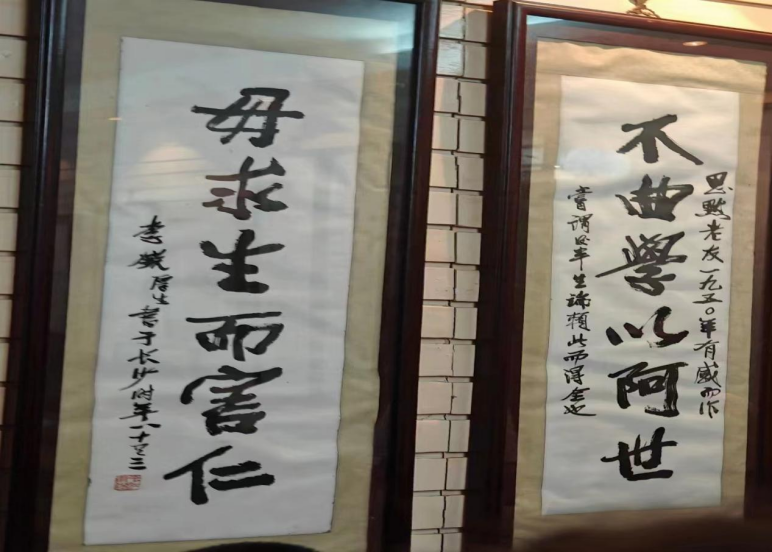 思黙老友一九五〇年有感而作
不曲學以阿世
嘗謂半生端賴此而得全也
毋求生而害仁
李生書于长沙时年八十又三